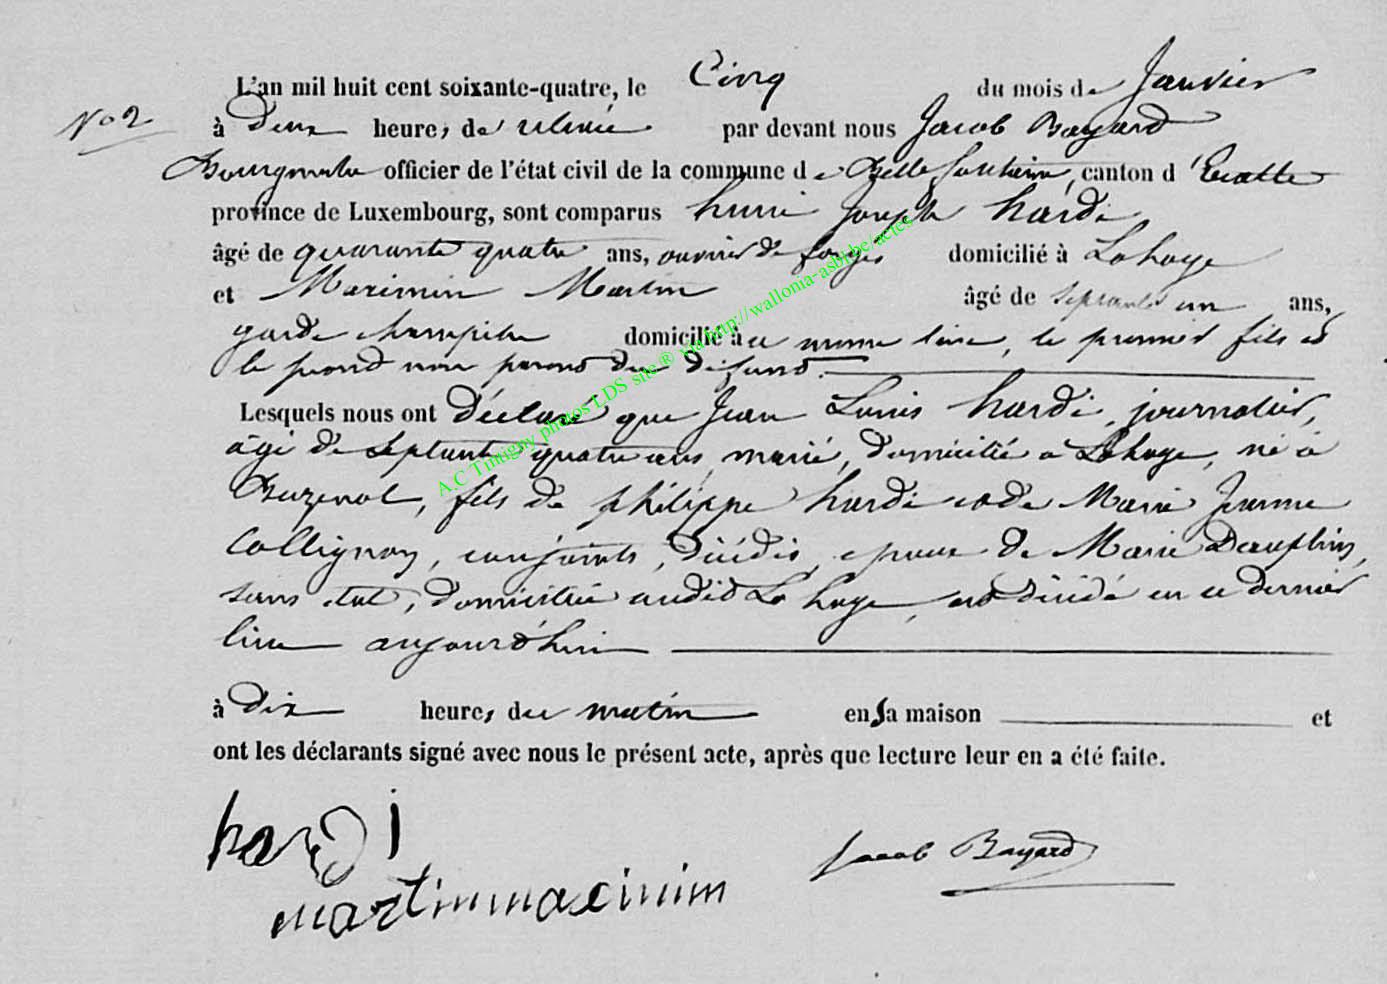 L'an mil huit cent soixante-quatre, le Cinq du mois de Janvier
N° 2 à deux heures de relevée par devant nous Jacob Bayard
Bourgmestre officier de l'état civil de la commune de Bellefontaine, canton d'Etalle
province de Luxembourg, sont comparus henri Joseph hardi
âgé de quarante quatre ans, ouvrier de forges domicilié à Lahage
et Maximin Martin âgé de septante un ans,
garde champêtre domicilié à u même lieu, le premier fils et
le second non parent du défunt.
Lesquels nous ont déclaré que Jean Louis hardi, journalier,
âgé de septante quatre ans, marié, domicilié à Lahage, né à
Buzenol, fils de philippe hardi et de Marie Jeanne
Collignon, conjoints, décédés, epoux de Marie Dauphin,
sans état, domiciliée audit Lahage, est décédé en ce dernier
lieu aujourd'hui
à dix heures du matin en sa maison et
ont les déclarants signé avec nous le présent acte, après que lecture leur en a été faite.
hardi
Jacob Bayard
martin macimim
A.C Tintigny photos LDS site ® via http://wallonia-asbl.be/actes